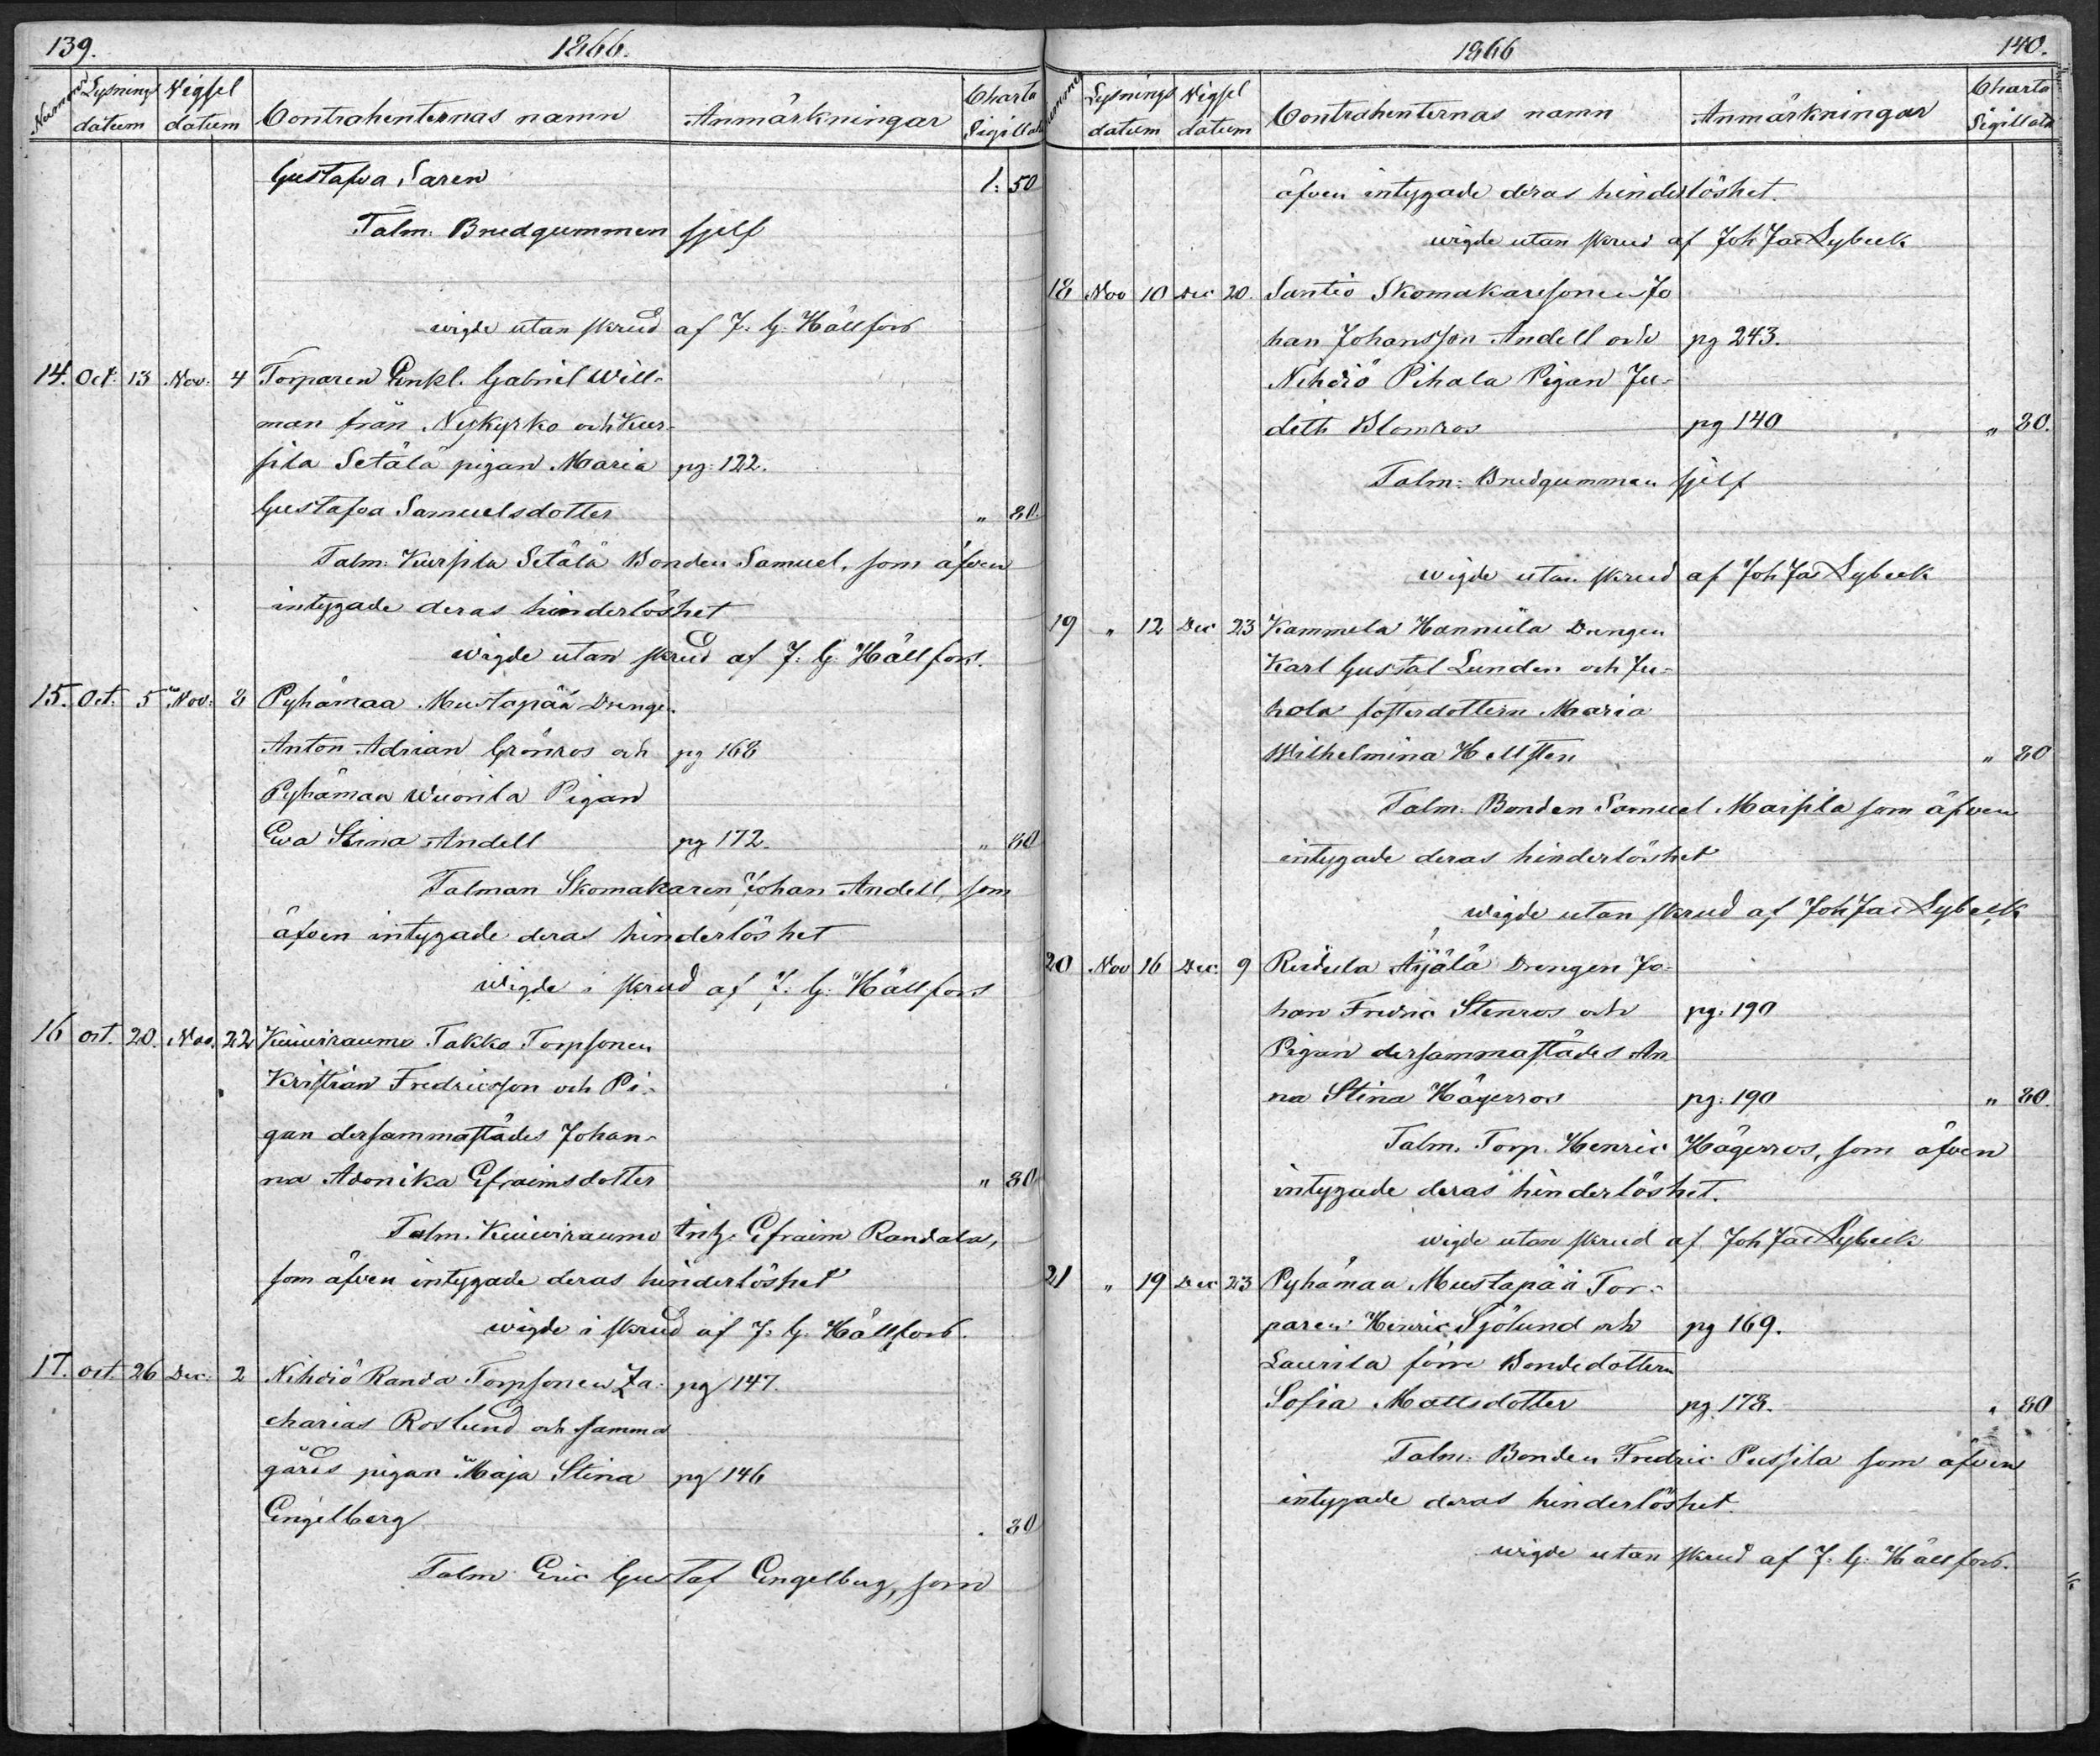 139. 1866.
Nummer Lysnings datum Vigsel datum Contrahenternas namn Anmärkningar Charta Sigillata
Gustafva Saren 1: 50
Talm: Brudgummen sjelf
wigde utan skrud af J. G. Hällfors
14. Oct: 13 Nov: 4 Torparen Enkl. Gabriel Will-
man från Nykyrko och Kur-
sila Setälä pigan Maria pg: 122.
Gustafva Samuelsdotter " 80.
Talm. Kursila Setälä Bonden Samuel, som äfven
intygade deras hinderlöshet
wigde utan skrud af J. G. Hällfors.
15. Oct. 5 Nov: 8 Pyhämaa Mustapää Drengen
Anton Adrian Grönros och pg 168
Pyhämaa Wuorila Pigan
Ewa Stina Andell pg 172. " 80
Talman Skomakaren Johan Andell, som
äfven intygade deras hinderlöshet
Wigde i skrud af J. G. Hällfors
16 oct. 20. Nov. 22 Kuiviraumo Takko Torpsonen
Kristian Fredricsson och Pi-
gan dersammastädes Johan-
na Adonika Efraimsdotter " 80
Talm. Kuiviraumo Efraim Randala,
som äfven intygade deras hinderlöshet
wigde i skrud af J. G. Hällfors.
17. oct. 26 Dec: 2 Nihdiö Randa Torpsonen Za- pg 147.
charias Roslund och samma
gårds pigan Maja Stina pg 146
Engelberg . 80
Talm Eric Gustaf Engelberg, som
1866 140.
Nummer Lysnings datum Vigsel datum Contrahenternas namn Anmärkningar Charta Sigillata
äfven intygade deras hinderlöshet.
wigde utan skrud af Joh Jac Lybeck
18 Nov 10 Dec 20. Santio Skomakaresonen Jo
han Johansson Andell och pg 243.
Nihdiö Pihala Pigan Ju-
dith Blomros pg 140 " 80.
Talm: Brudgumman sjelf
wigde utan skrud af Joh Jac Lybeck
19 " 12 Dec 23 Kammela Hannula Drengen
Karl Gustaf Lunden och Ju-
hola fosterdottern Maria
Wilhelmina Hellsten " 80
Talm: Bonden Samuel Maisila som äfven
intygade deras hinderlöshet
wigde utan skrud af Joh Jac Lybeck
20 Nov 16 Dec. 9 Rudula Äijälä Drengen Jo-
han Fredric Stenros och pg: 190
Pigan dersammastädes An
na Stina Hägerros pg: 190 " 80.
Talm. Torp. Henric Hägerros, som äfven
intygade deras hinderlöshet.
wigde utan skrud af Joh Jac Lybeck
21 " 19 Dec 23 Pyhämaa Mustapää Tor-
paren Henric Sjölund och pg 169.
Laurila förre Bondedottern
Sofia Mattsdotter pg 178. " 80
Talm: Bonden Fredric Pussila som äfven
intygade deras hinderlöshet.
wigde utan skrud af J. G. Hällfors.